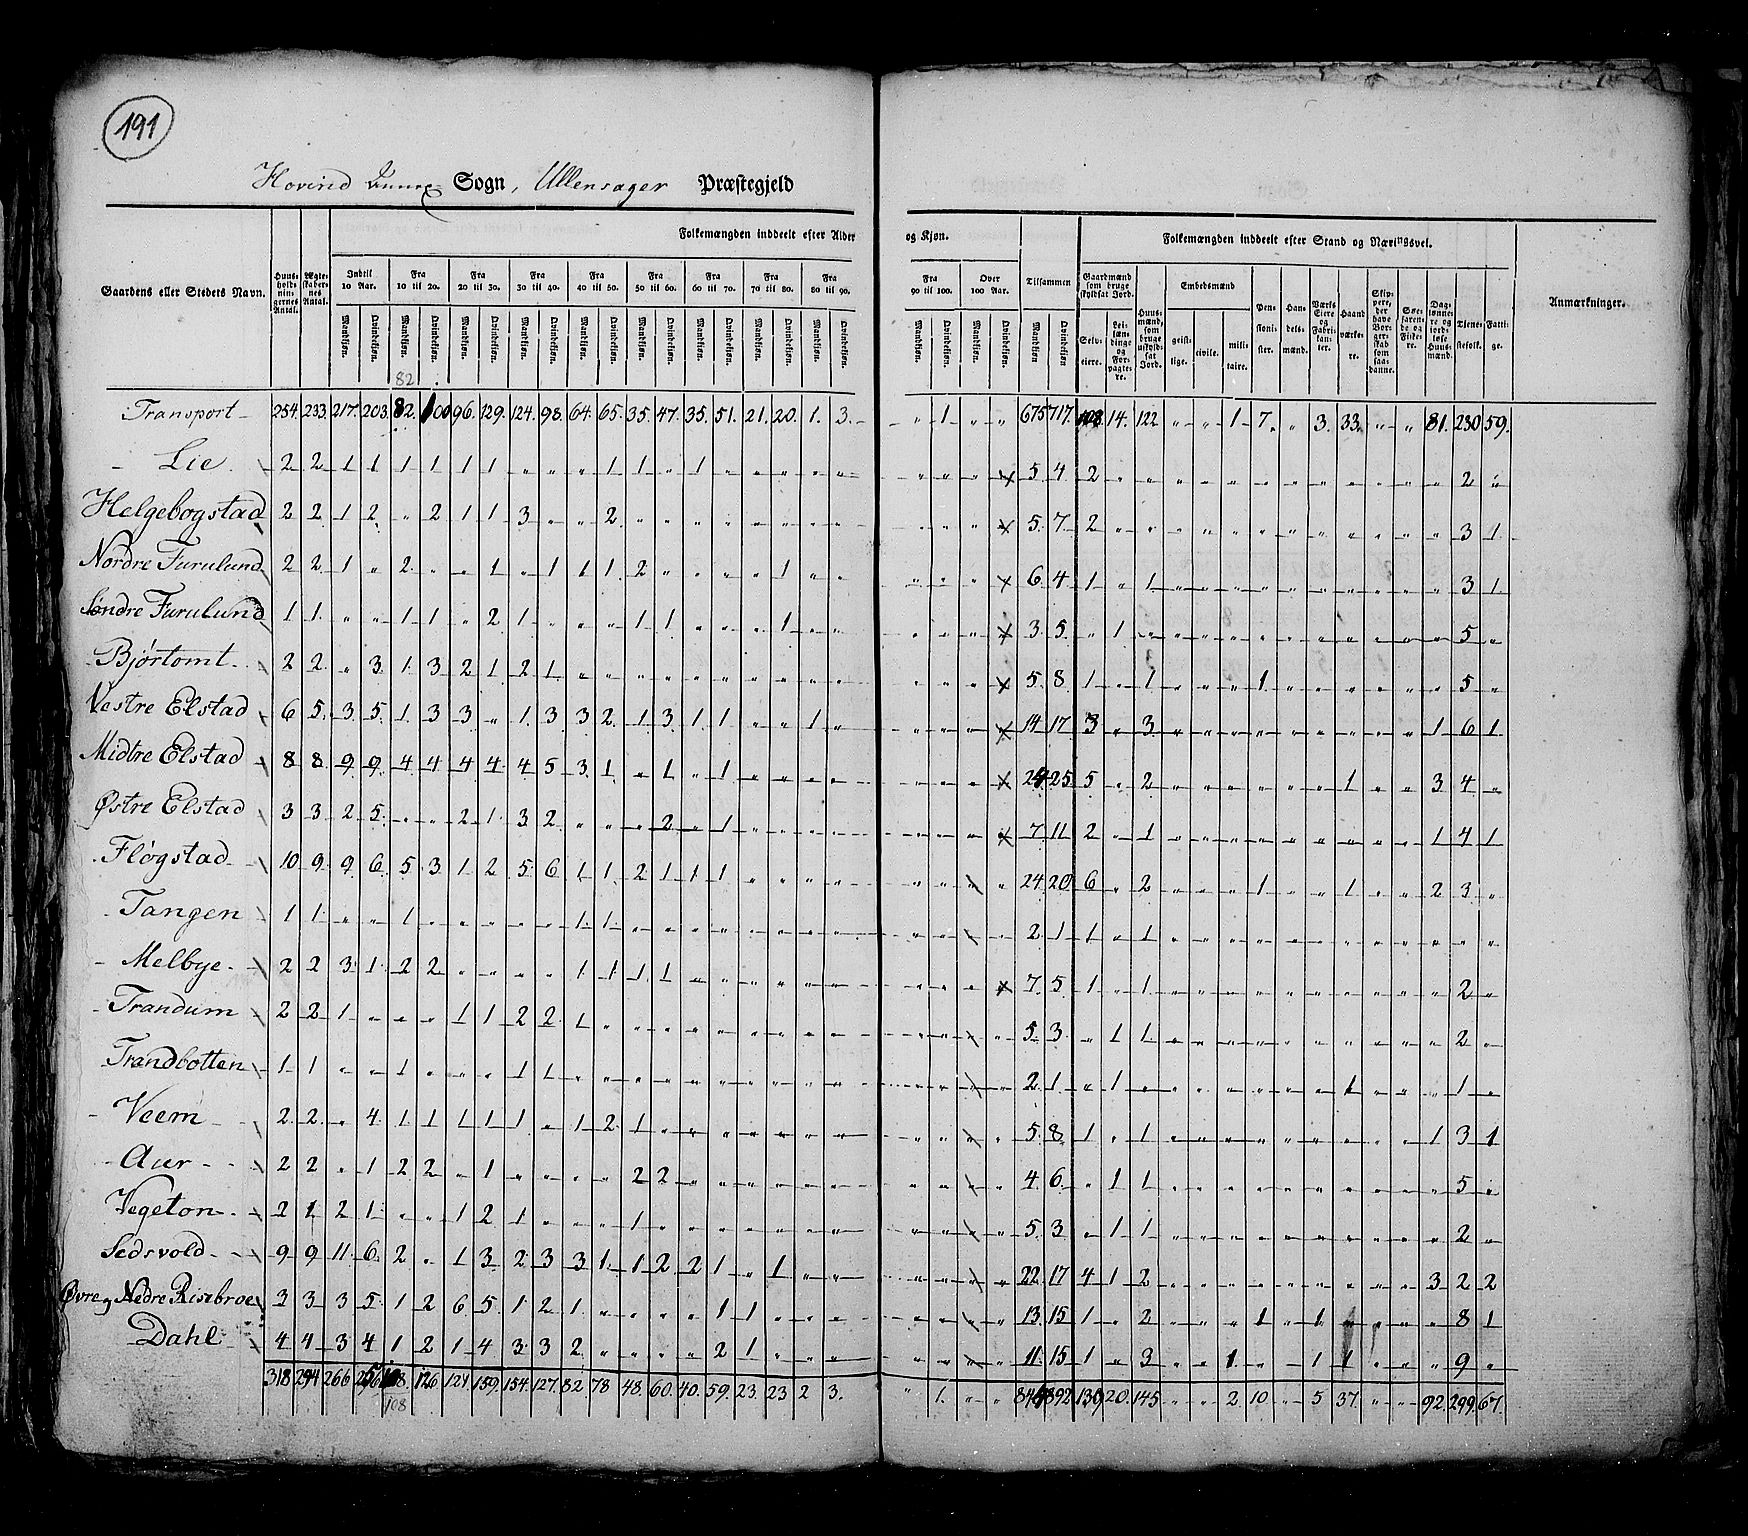 191
Hovind Sogn, Ullensager Præstegjeld
Folkemængden inddeelt efter Alder og Kjøn. Folkemængden inddeelt efter Stand og Næringsvei.
Gaardens eller Stedets Navn. Huusholdningernes Antal. Ægteskabernes Antal. Indtil 10 Aar. Fra 10 til 20. Fra 20 til 30. Fra 30 til 40. Fra 40 til 50. Fra 50 til 60. Fra 60 til 70. Fra 70 til 80. Fra 80 til 90. Fra 90 til 100. Over 100 Aar. Tilsammen Gaardmænd som bruge skyldsat Jord. Huusmænd, som bruge uskyldsat Jord. Embedsmænd Pensionister. Handelsmænd. Værks Eiere og Fabrikanter. Haandværkere. Skippere, der have Borgerskab som saadanne. Søefarende og Fiskere. Daglønnere og jordløse Huusmænd. Tjenestefolk. Fattige. Anmærkninger.
Mandkjøn. Qvindekjøn. Mandkjøn. Qvindekjøn. Mandkjøn. Qvindekjøn. Mandkjøn. Qvindekjøn. Mandkjøn. Qvindekjøn. Mandkjøn. Qvindekjøn. Mandkjøn. Qvindekjøn. Mandkjøn. Qvindekjøn. Mandkjøn. Qvindekjøn. Mandkjøn. Qvindekjøn. Mandkjøn. Qvindekjøn. Mandkjøn Qvindekjøn. Selveiere. Leilændinge og Forpagtere. geistlige. civile. militaire.
82
Transport 254. 233. 217. 203. 82. 100 96. 129. 124. 98. 64. 65. 35. 47. 35. 51. 21. 20. 1. 3. " 1 " " 675 717. 108. 14. 122 " " 1 7. " 3. 33. " " 81. 230 59.
Lie. 2 2 1 1 1 1 1 1 " " " 1 1 " 1 " " " " " " " " 5 4 2 " " " " " " " " " " " " 2 "
Helgebogstad 2 2 1 2 " 2 1 1 3 " " 2 " " " " " " " " " " " 5. 7. 2 " " " " " " " " " " " " 3 1
Nordre Furulund 2 2 1 " 2 " " 1 " 1 1 1. 2 " " " " 1 " " " " " 6 4 1 " 1 " " " " " " " " " " 3 1
Søndre Furulund 1 1 " " 1 1 " 2 1 " " " 1 1 " " " 1 " " " " " 3. 5. " 1 " " " " " " " " " " " 5 "
Bjørtomt 2 2 " 3 1. 3 2 1 2 1 " " " " " " " " " " " " " 5. 8 1 " 1 " " " 1 " " " " " " 5 "
Vestre Elstad 6 5. 3 5. 1. 3 3 " 1. 3 3 2. 1 3 1 1 " " 1 " " " " 14 17 3 " 3 " " " " " " " " " 1 6 1
Midtre Elstad 8 8 9 9 4 4 4 4 4 5 3 1 " 1 " 1 " " " " " " " 24 25 5 " 2 " " " " " " 1 " " 3 4 "
Østre Elstad 3 3 2 5 " " 2 1 3 2 " " " 2 " 1 " " " " " " " 7 11 2 " 1 " " " " " " " " " 1 4 1
Fløgstad 10 9 9 6 5 3 1 2 5 6 1 1 2 1 1 1 " " " " " " " 24 20 6 " 2 " " " 1 " " 1 " " 2 3 "
Tangen 1 1 " " 1 " " " " " 1 1 " " " " " " " " " " " 2 1 1 " 1 " " " " " " " " " " " "
Melbye 2 2 3 1 2 2 " " " " 1 1 1 1 " " " " " " " " " 7. 5 1 " 1 " " " " " " " " " " 2 "
Trandum 2 2 1 " " " 1 1 2 2 1 " " " " " " " " " " " " 5 3 " 1 1 " " " " " " " " " " 2 "
Trandbotten 1 1 " " 1 " " " 1 1 " " " " " " " " " " " " " 2 1 " 1 " " " " " " " 1 " " " 1 "
Veem 2 2 " 4 1 1 1 1 1 " 1 2 1 " " " " " " " " " " 5 8 1 " 1 " " " " " " " " " 1 3 1
Aur 2 2 " 1 2 2 " 1 " " " " 2 2 " " " " " " " " " 4 6 " 1 1 " " " " " " " " " " 5 "
Vegeton 2 1 2 1 " " 1 2 1 " " " 1 " " " " " " " " " " 5 3 " 1 1 " " " " " " " " " " 2 "
Sedsvold 9 9 11 6 2 " 1 3 2 3 3 1 1 2 2 1 " 1 " " " " " 22 17 4 1 2 " " " " " " " " " 3 2 2
Øvre og Nedre Risebroe 3 3 3 5 1 2 6 5 1 2 1 " " " " 1 1 " " " " " " 13 15 1 " 2 " " " 1 " 1 " " " " 8 1
Dahl 4 4 3 4 1 2 1 4 3 3 2 " " " " 2 1 " " " " " " 11 15 1 " 3 " " 1 " " 1 1 " " " 9 "
318 294 266 256 108. 126 121 159. 154. 127. 82 78 48. 60. 40. 59. 23 23 2 3. " 1. " " 844 892 130 20. 145 " " 2 10 " 5 37. " " 92. 299. 67.
108